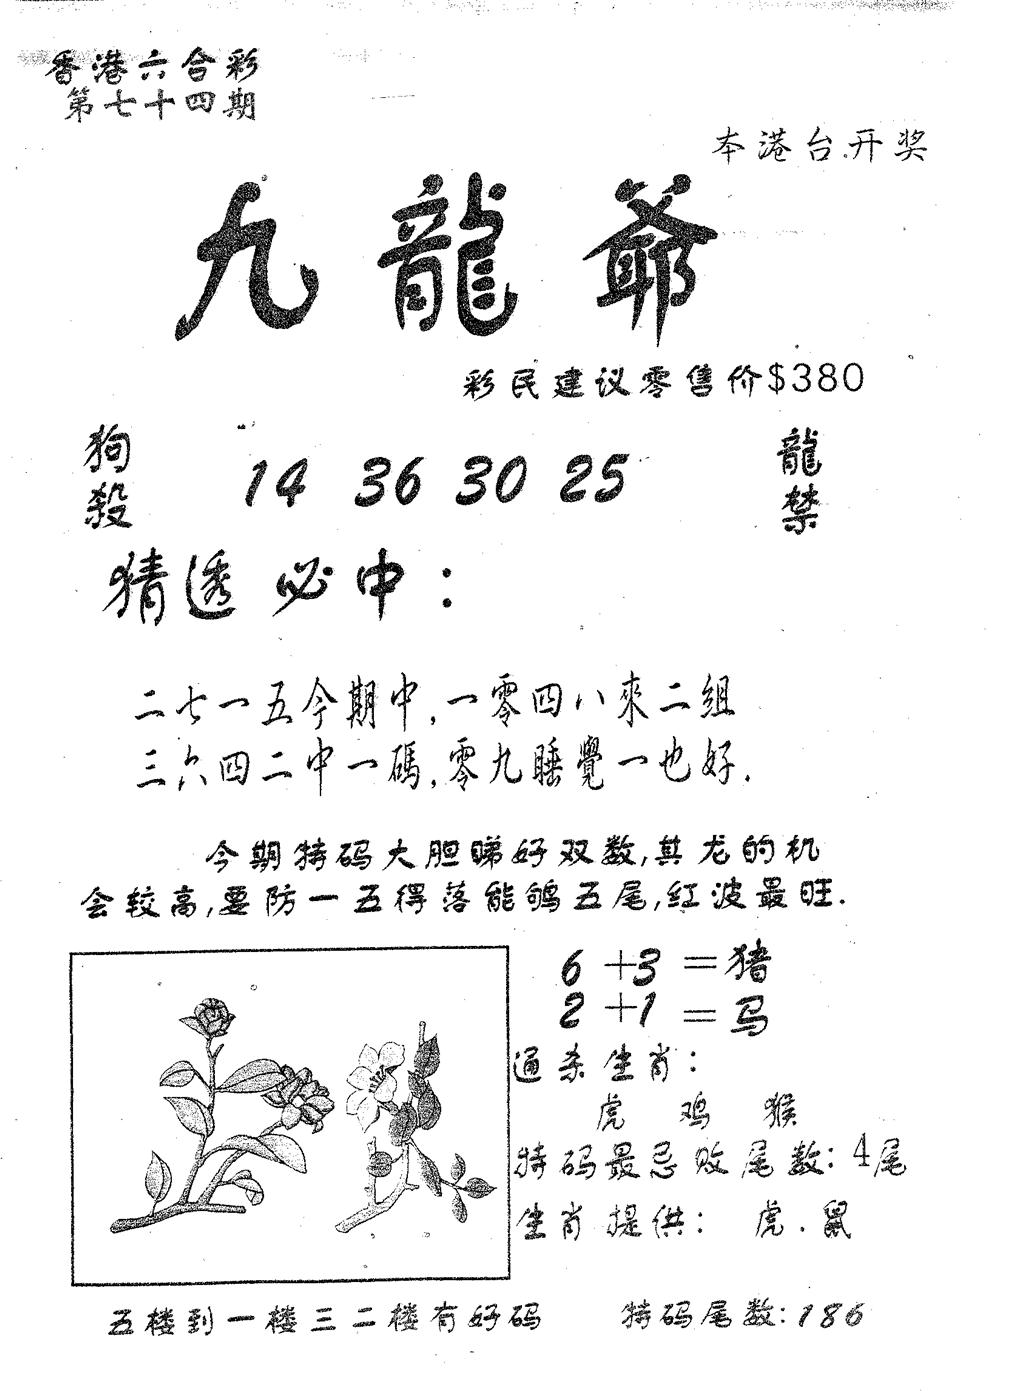 香港六合彩
第七十四期
本港台.开奖
九龍爺
彩民建议零售价$380
狗殺 14 36 30 25 龍禁
猜透必中：
二七一五今期中,一零四八來二組
三六四二中一碼,零九睡覺一也好.
今期特码大胆睇好双数,其龙的机
会较高,要防一五得落能鸲五尾,红波最旺.
6+3=猪
2+1=马
通杀生肖：
虎 鸡 猴
特码最忌败尾数：4尾
生肖提供： 虎.鼠
五楼到一楼三二楼有好码 特码尾数：186